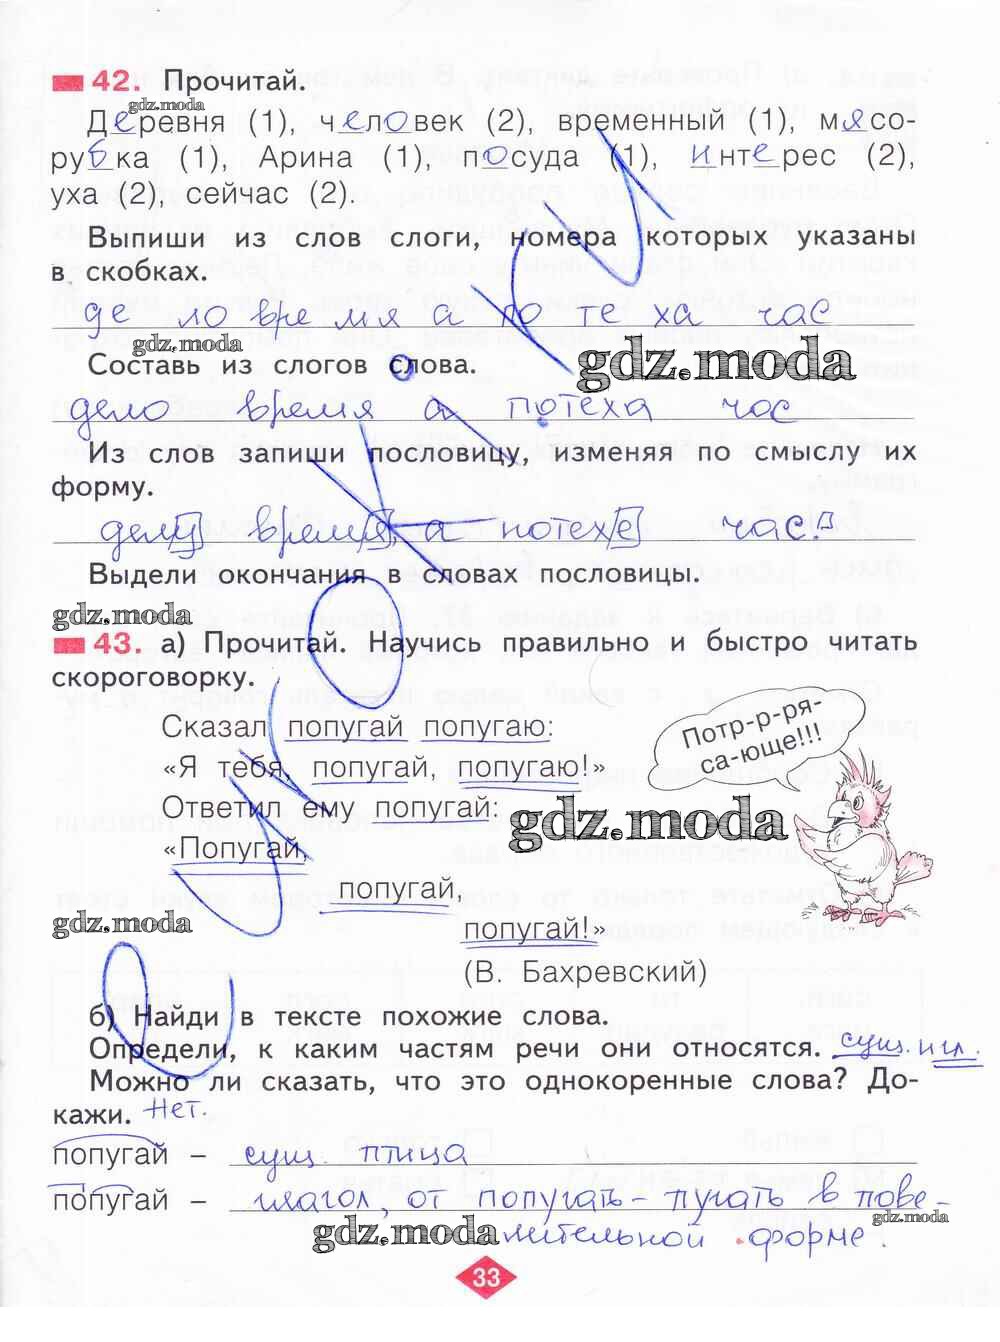 42. Прочитай.
gdz.moda
Деревня (1), человек (2), временный (1), мясо-
рубка (1), Арина (1), посуда (1), интерес (2),
уха (2), сейчас (2).
Выпиши из слов слоги, номера которых указаны
в скобках.
де ло вре мя а по те ха час
gdz.moda
Составь из слогов слова.
gdz.moda
дело время а потеха час
Из слов запиши пословицу, изменяя по смыслу их
форму.
делу время, а потехе час.
Выдели окончания в словах пословицы.
gdz.moda
43. а) Прочитай. Научись правильно и быстро читать
скороговорку.
Сказал попугай попугаю:
Потр-р-ря-
са-юще!!!
«Я тебя, попугай, попугаю!»
Ответил ему попугай:
gdz.moda
«Попугай,
попугай,
gdz.moda
попугай!»
(В. Бахревский)
б) Найди в тексте похожие слова.
Определи, к каким частям речи они относятся. сущ. и гл.
Можно ли сказать, что это однокоренные слова? До-
кажи. Нет.
попугай – сущ. птица
попугай – глагол, от попугать – пугать в пове-
gdz.moda
gdz.moda
лительной форме.
33